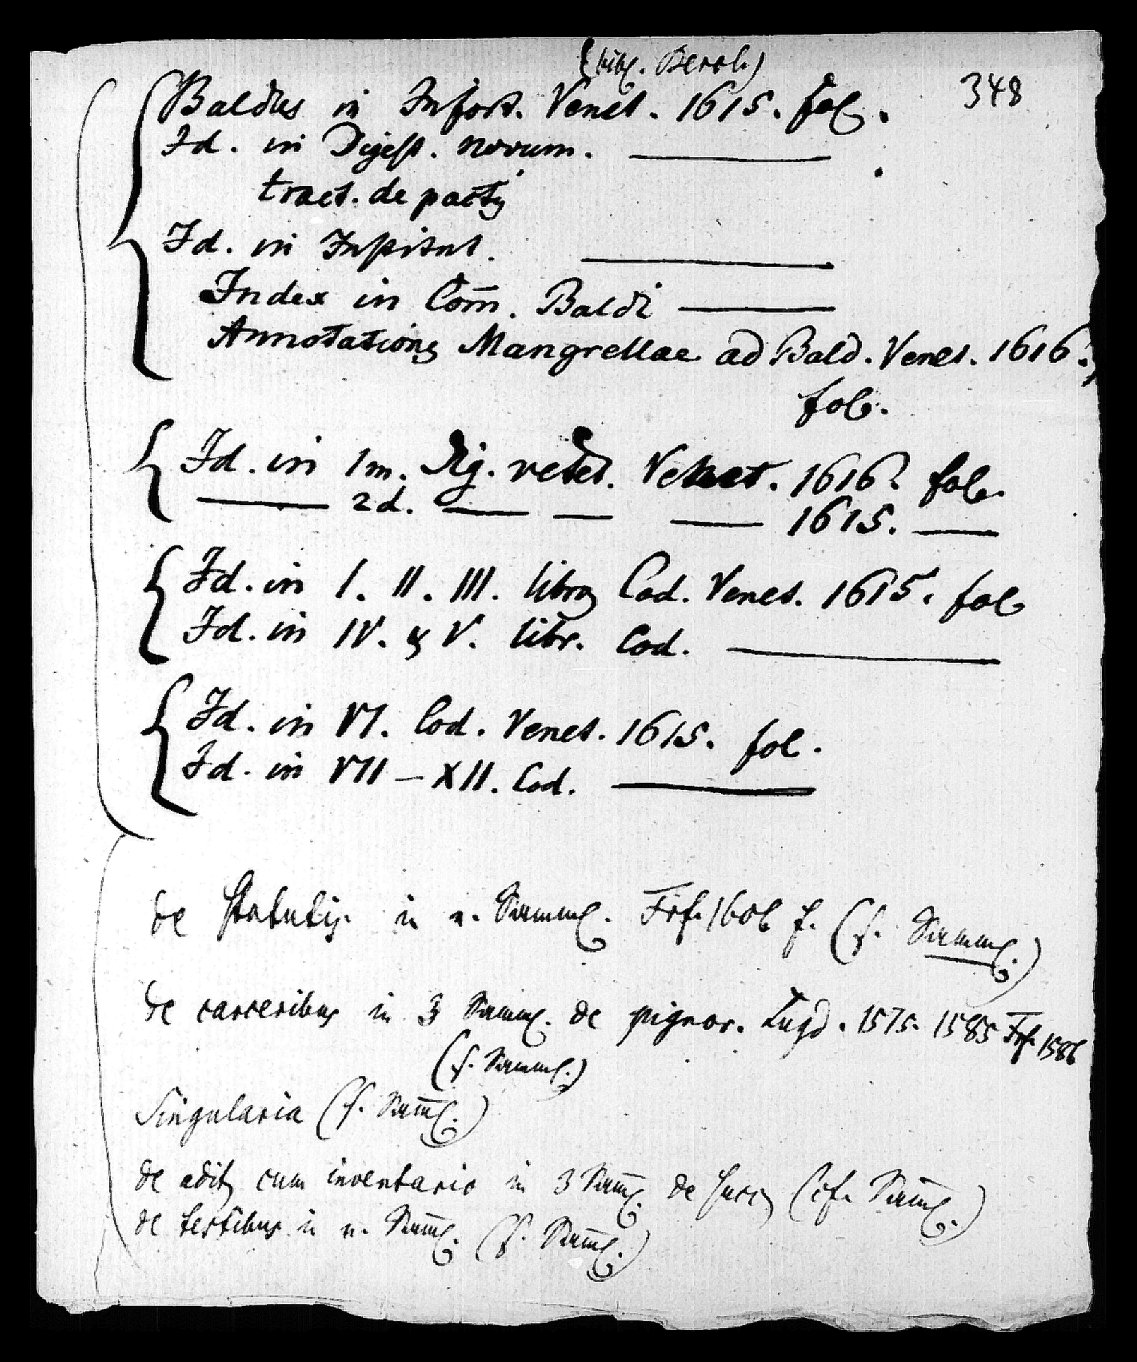 (bibl. Berol.)
348
Baldus in Infort. Venet. 1615. fol.
Id. in Digest. novum.
tract. de pactis
Id. in Institut.
Index in Com̄. Baldi
Annotationes Mangrellae ad Bald. Venet. 1616.
fol.
Id. in 1m. Dig. vetet. Venet. 1616. fol.
2d. 1615.
Id. in I. II. III. libros Cod. Venet. 1615. fol
Id. in IV. & V. libr. Cod.
Id. in VI. Cod. Venet. 1615. fol.
Id. in VII – XII. Cod.
de statutis. in e. Samml. Frf. 1606 f. (s. Samml.)
de carceribus in 3 Samml. de pignor. Lugd. 1575. 1585 Frf. 1586
(s. Samml.)
Singularia (s. Sam̄l.)
de adit. cum inventario in 3 Sam̄l. de succ. (cf. Sam̄l.)
de testibus in e. Sam̄l. (s. Sam̄l.)